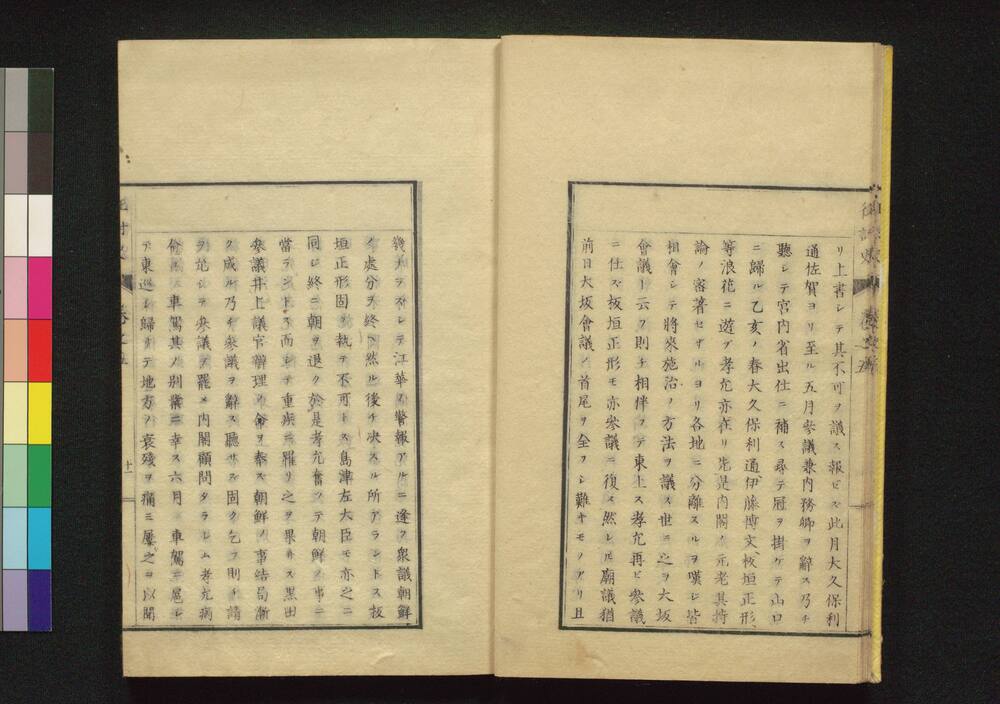 リ上書シテ其不可ヲ議ス報ゼズ此月大久保利
通佐賀ヨリ至ル五月參議兼内務卿ヲ辭ス乃チ
聽シテ宮内省出仕ニ補ス尋テ冠ヲ掛ケテ山口
ニ歸ル乙亥ノ春大久保利通伊藤博文板垣正形、
等浪花ニ遊ブ孝允亦在リ先是内閣ノ元老其持
論ノ密著セザルヨリ各地ニ分離スルヲ嘆シ皆
相會シテ將來施治ノ方法ヲ議ス世ニ之ヲ大坂
會議ト云フ則チ相伴フテ東上ス孝允再ビ參議
ニ任ズ板垣正形モ亦參議ニ復ス然レ𪜈廟議猶
前日大坂會議ノ首尾ヲ全フシ難キモノアリ且
幾ナラズシテ江華ノ警報アルニ逢フ衆議朝鮮
ノ處分ヲ終ヘ然ル後チ决スル所アラントス板
垣正形固ク執テ不可トス島津左大臣モ亦之ニ
同シ終ニ朝ヲ退ク於是孝允奮ツテ朝鮮ノ事ニ
當ラントス而シテ重疾ニ羅リ之ヲ果サス黒田
參議井上議官辦理ノ命ヲ奉ス朝鮮ノ事結局漸
ク成ル乃チ參議ヲ辭ス聽サズ固ク乞フ則チ請
ヲ允シテ參議ヲ罷メ内閣顧問タラシム孝允病
車駕其ノ別業ニ幸ス六月 車駕ニ扈シ
テ東巡シ歸リテ地方ノ衰殘ヲ痛ミ屢之ヲ以聞
十一